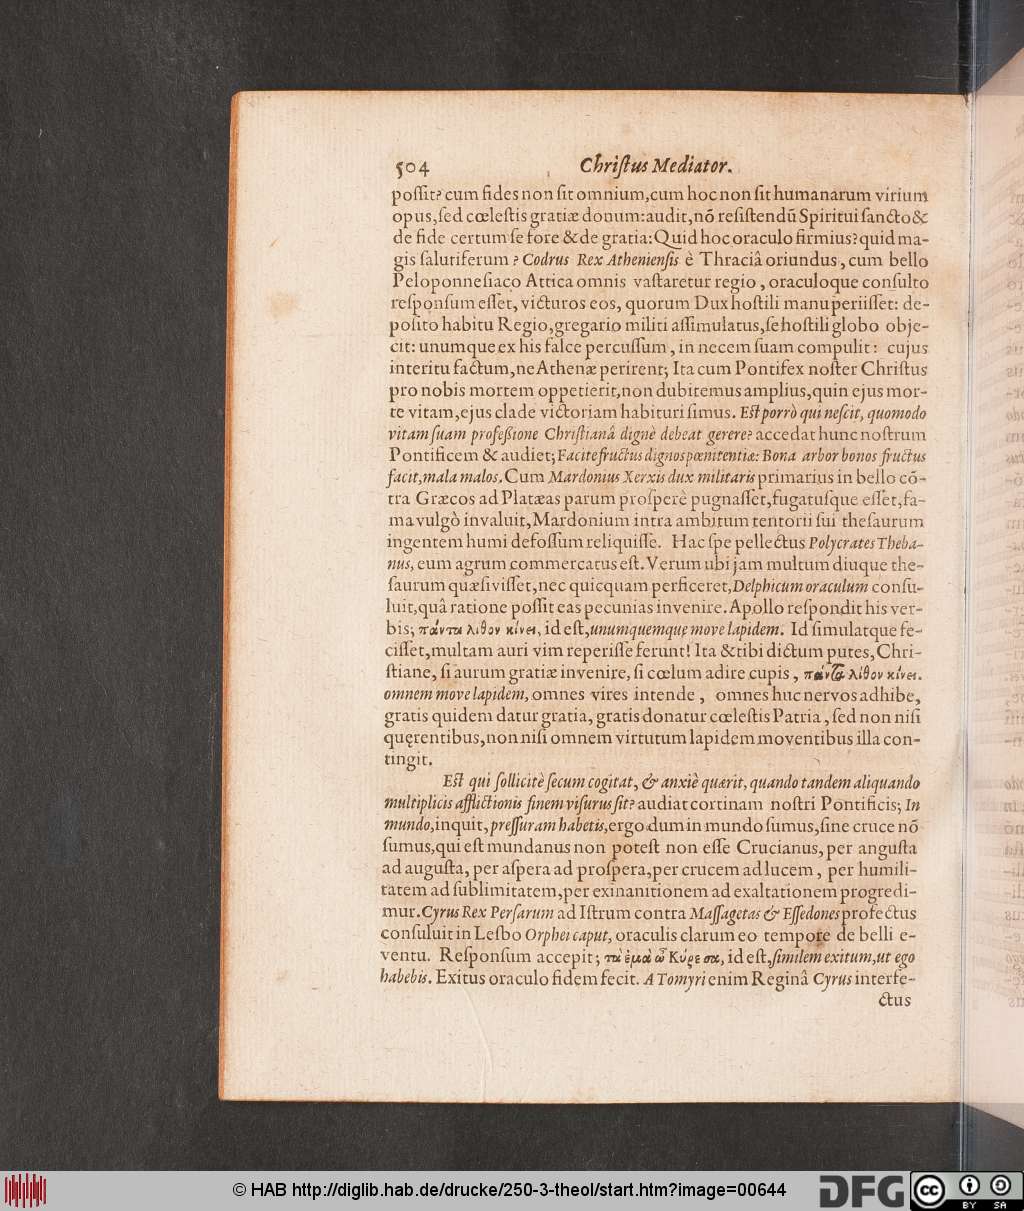 504 Chriſtus Mediator.
poſſit? cum fides non ſit omnium, cum hoc non ſit humanarum virium
opus, ſed cœleſtis gratiæ donum: audit, nõ reſiſtendũ Spiritui ſancto &
de fide certum ſe fore & de gratia: Quid hoc oraculo firmius? quid ma-
gis ſalutiferum? Codrus Rex Athenienſis è Thraciâ oriundus, cum bello
Peloponneſiaco Attica omnis vaſtaretur regio, oraculoque conſulto
reſponſum eſſet, victuros eos, quorum Dux hoſtili manu periiſſet: de-
poſito habitu Regio, gregario militi aſſimulatus, ſe hoſtili globo obje-
cit: unumque ex his falce percuſſum, in necem ſuam compulit: cujus
interitu factum, ne Athenæ perirent; Ita cum Pontifex noſter Chriſtus
pro nobis mortem oppetierit, non dubitemus amplius, quin ejus mor-
te vitam, ejus clade victoriam habituri ſimus. Eſt porrò qui neſcit, quomodo
vitam ſuam profeßione Chriſtianâ dignè debeat gerere? accedat hunc noſtrum
Pontificem & audiet; Facite fructus dignos pœnitentiæ: Bona arbor bonos fructus
facit, mala malos. Cum Mardonius Xerxis dux militaris primarius in bello cõ-
tra Græcos ad Platæas parum proſperè pugnaſſet, fugatuſque eſſet, fa-
ma vulgò invaluit, Mardonium intra ambitum tentorii ſui theſaurum
ingentem humi defoſſum reliquiſſe. Hac ſpe pellectus Polycrates Theba-
nus, eum agrum commercatus eſt. Verum ubi jam multum diuque the-
ſaurum quæſiviſſet, nec quicquam perficeret, Delphicum oraculum conſu-
luit, quâ ratione poſſit eas pecunias invenire. Apollo reſpondit his ver-
bis; πάντα λίθον κίνει, id eſt, unumquemque move lapidem. Id ſimulatque fe-
ciſſet, multam auri vim reperiſſe ferunt! Ita & tibi dictum putes, Chri-
ſtiane, ſi aurum gratiæ invenire, ſi cœlum adire cupis, πάντα λίθον κίνει.
omnem move lapidem, omnes vires intende, omnes huc nervos adhibe,
gratis quidem datur gratia, gratis donatur cœleſtis Patria, ſed non niſi
quęrentibus, non niſi omnem virtutum lapidem moventibus illa con-
tingit.
Eſt qui ſollicitè ſecum cogitat, & anxiè quærit, quando tandem aliquando
multiplicis afflictionis finem viſurus ſit? audiat cortinam noſtri Pontificis; In
mundo, inquit, preſſuram habetis, ergo dum in mundo ſumus, ſine cruce nõ
ſumus, qui eſt mundanus non poteſt non eſſe Crucianus, per anguſta
ad auguſta, per aſpera ad proſpera, per crucem ad lucem, per humili-
tatem ad ſublimitatem, per exinanitionem ad exaltationem progredi-
mur. Cyrus Rex Perſarum ad Iſtrum contra Maſſagetas & Eſſedones profectus
conſuluit in Lesbo Orphei caput, oraculis clarum eo tempore de belli e-
ventu. Reſponſum accepit; τὰ ἐμὰ ὦ Κύρε σα, id eſt, ſimilem exitum, ut ego
habebis. Exitus oraculo fidem fecit. A Tomyri enim Reginâ Cyrus interfe-
ctus
© HAB http://diglib.hab.de/drucke/250-3-theol/start.htm?image=00644
DFG
cc BY SA